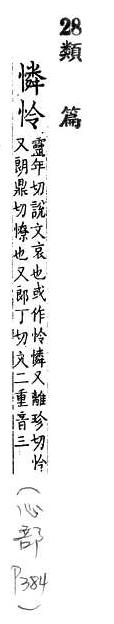 28
類篇
憐怜
靈年切說文哀也或作怜憐又離珍切怜
又朗鼎切憭也又郎丁切文二重音三
(心部
P384)